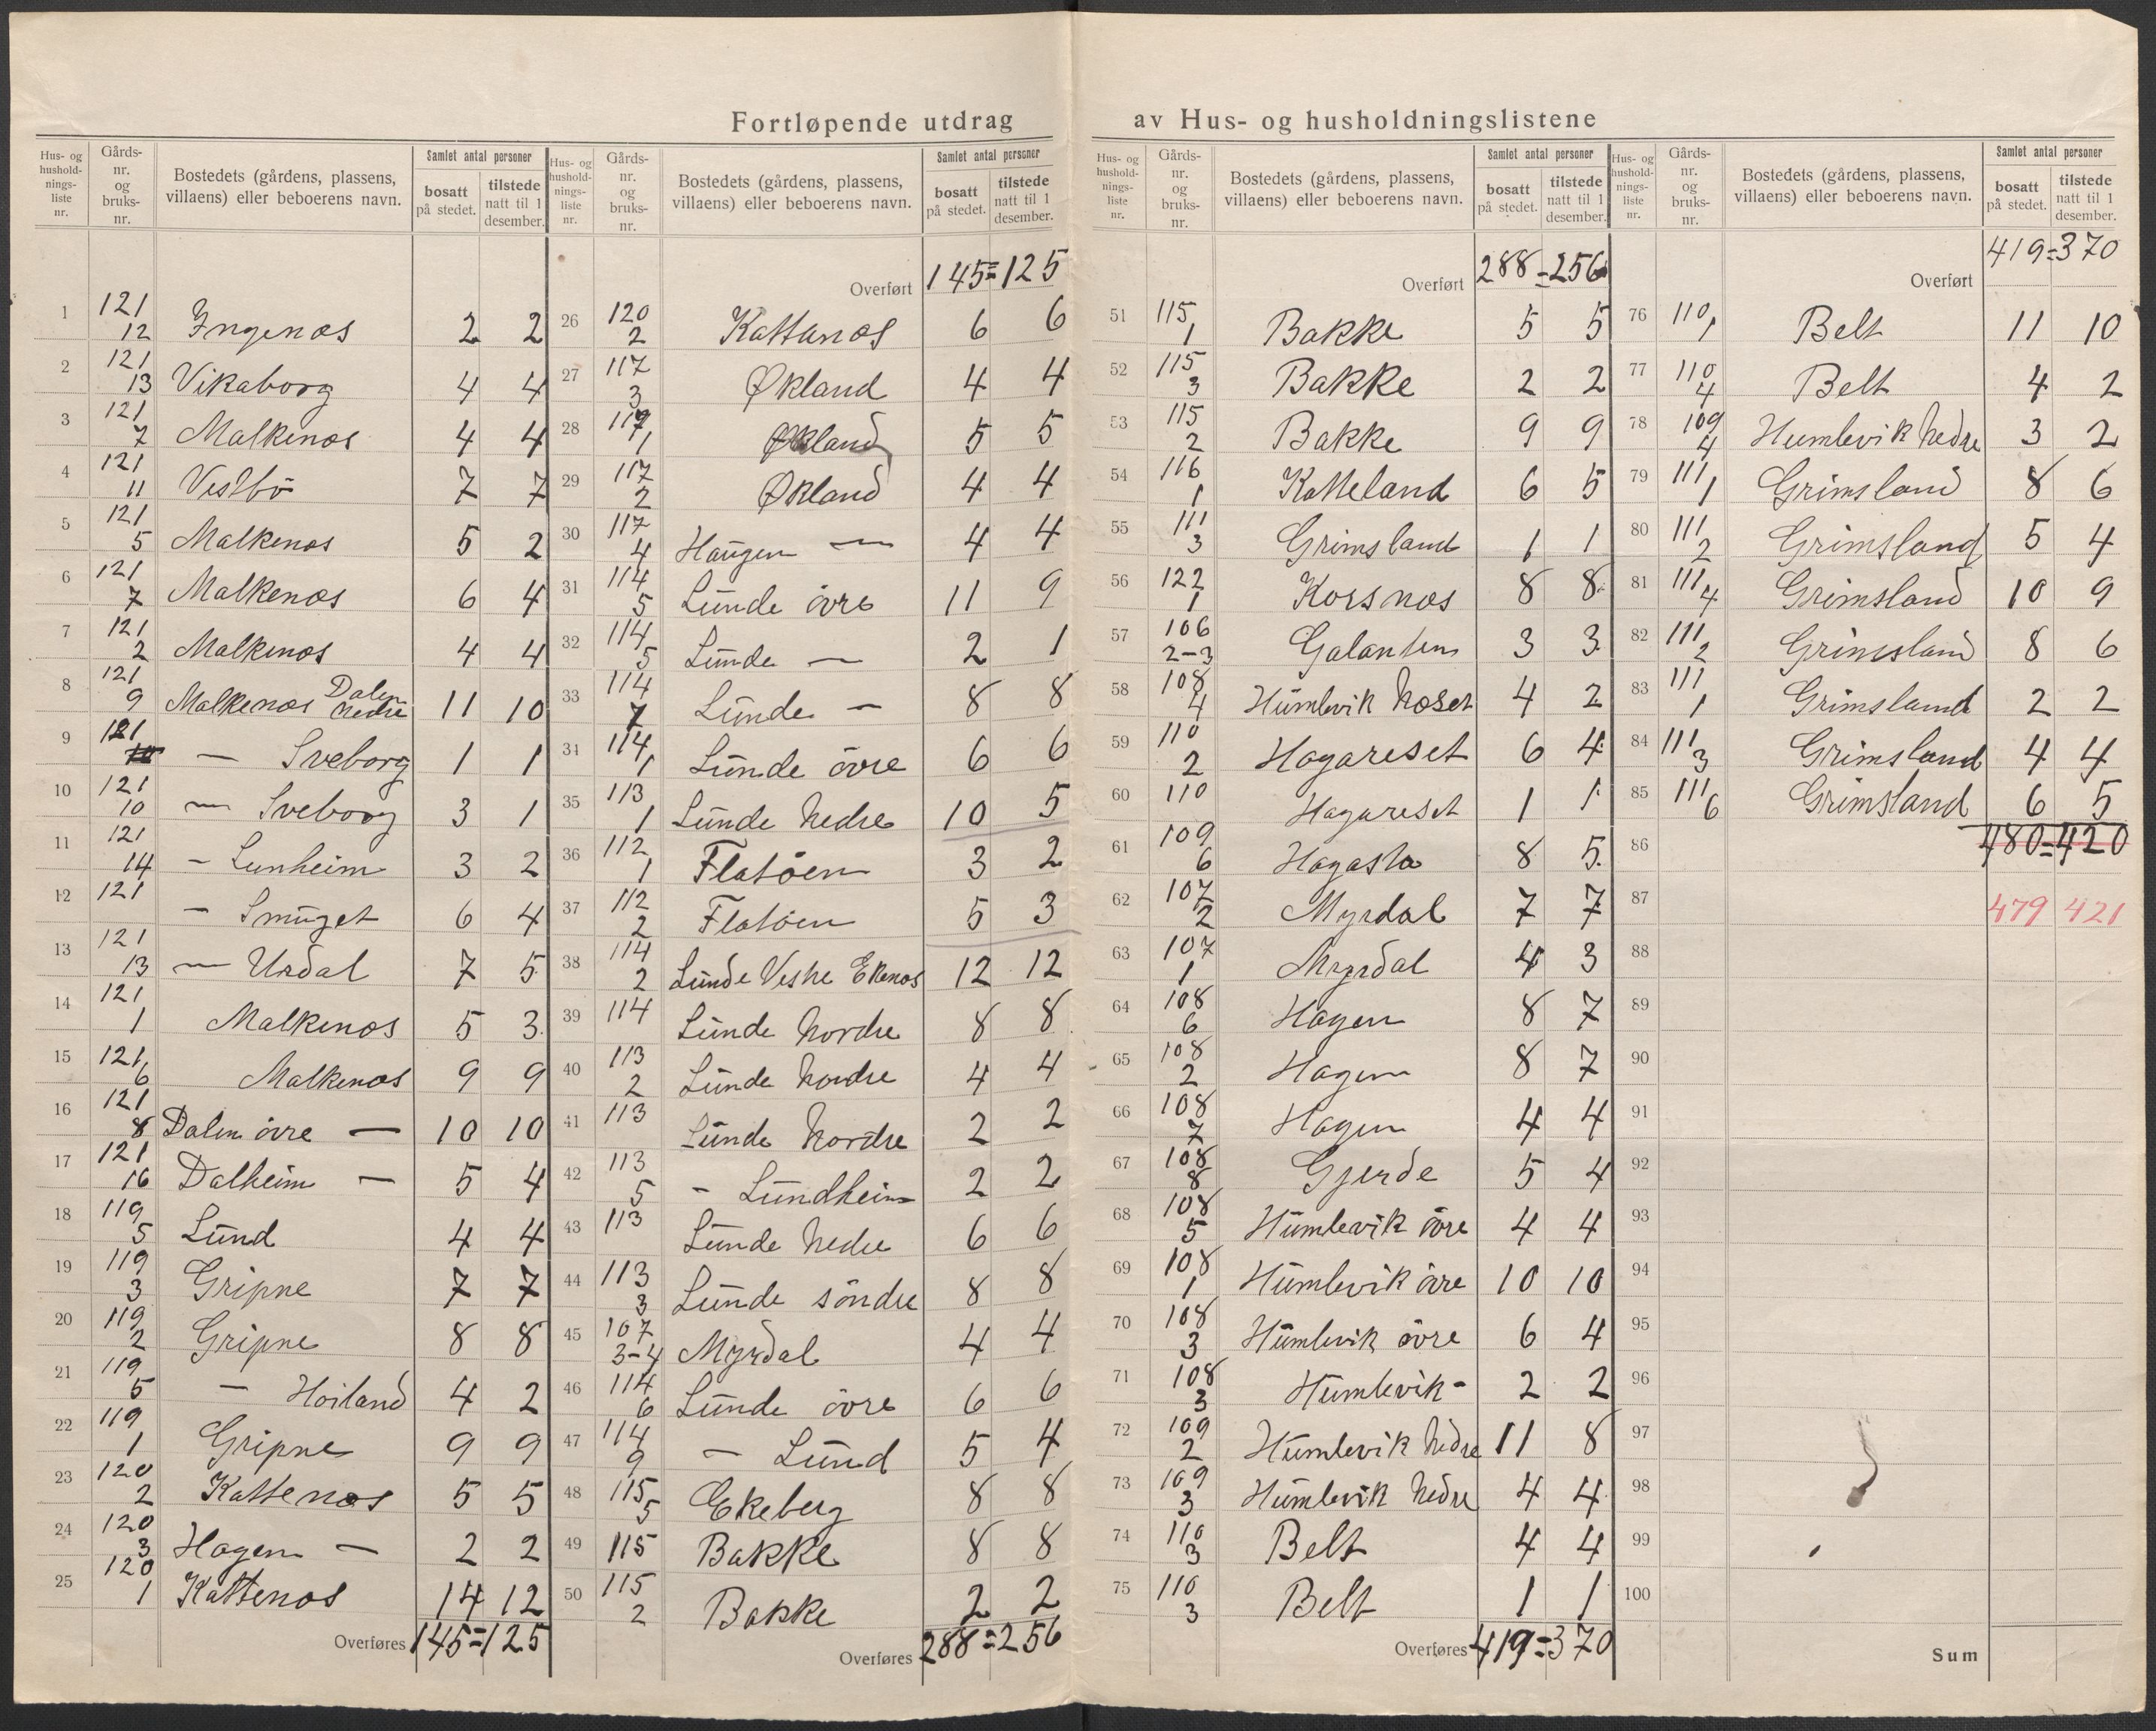 Fortløpende utdrag av Hus- og husholdningslistene
Hus- og hushold-nings-liste nr. | Gårds-nr. og bruks-nr. | Bostedets (gårdens, plassens, villaens) eller beboerens navn. | Samlet antal personer | bosatt på stedet. | tilstede natt til 1 desember.
1 121 12 Ingenæs 2 2
2 121 13 Vikaborg 4 4
3 121 7 Malkenæs 4 4
4 121 11 Vestbö 7 7
5 121 5 Malkenæs 5 2
6 121 7 Malkenæs 6 4
7 121 2 Malkenæs 4 4
8 121 9 Malkenæs Dalen nedre 11 10
9 121 — Sveborg 1 1
10 121 10 — Sveborg 3 1
11 121 14 — Lunheim 3 2
12 121 — Smuget 6 4
13 121 13 — Urdal 7 5
14 121 1 Malkenæs 5 3
15 121 6 Malkenæs 9 9
16 121 8 Dalen övre — 10 10
17 121 16 Dalheim — 5 4
18 119 5 Lund 4 4
19 119 3 Gripne 7 7
20 119 2 Gripne 8 8
21 119 5 — Hoiland 4 2
22 119 1 Gripne 9 9
23 120 2 Kattenæs 5 5
24 120 3 Hagen — 2 2
25 120 1 Kattenæs 14 12
Overføres 145=125
Hus- og hushold-nings-liste nr. | Gårds-nr. og bruks-nr. | Bostedets (gårdens, plassens, villaens) eller beboerens navn. | Samlet antal personer | bosatt på stedet. | tilstede natt til 1 desember.
Overført 145=125
26 120 2 Kattanæs 6 6
27 117 3 Økland 4 4
28 117 1 Økland 5 5
29 117 2 Økland 4 4
30 117 4 Haugen — 4 4
31 114 5 Lunde övre 11 9
32 114 5 Lunde — 2 1
33 114 7 Lunde — 8 8
34 114 1 Lunde övre 6 6
35 113 1 Lunde Nedre 10 5
36 112 1 Flatöen 3 2
37 112 2 Flatöen 5 3
38 114 2 Lunde Vestre Ekenæs 12 12
39 114 Lunde Nordre 8 8
40 113 2 Lunde Nordre 4 4
41 113 Lunde Nordre 2 2
42 113 5 — Lundheim 2 2
43 113 Lunde Nedre 6 6
44 113 3 Lunde söndre 8 8
45 107 3-4 Myrdal 4 4
46 114 6 Lunde övre 6 6
47 114 9 — Lund 5 4
48 115 5 Ekeberg 8 8
49 115 Bakke 8 8
50 115 2 Bakke 2 2
Overføres 288=256
Hus- og hushold-nings-liste nr. | Gårds-nr. og bruks-nr. | Bostedets (gårdens, plassens, villaens) eller beboerens navn. | Samlet antal personer | bosatt på stedet. | tilstede natt til 1 desember.
Overført 288=256
51 115 1 Bakke 5 5
52 115 3 Bakke 2 2
53 115 2 Bakke 9 9
54 116 1 Katteland 6 5
55 111 3 Grimsland 1 1
56 122 1 Korsnæs 8 8
57 106 2-3 Galanten 3 3
58 108 4 Humlevik Noset 4 2
59 110 2 Hagareset 6 4
60 110 Hagareset 1 1
61 109 6 Hagasta 8 5
62 107 2 Myrdal 7 7
63 107 1 Myrdal 4 3
64 108 6 Hagen 8 7
65 108 2 Hagen 8 7
66 108 7 Hagen 4 4
67 108 8 Gjerde 5 4
68 108 5 Humlevik övre 4 4
69 108 1 Humlevik övre 10 10
70 108 3 Humlevik övre 6 4
71 108 3 Humlevik — 2 2
72 109 2 Humlevik Nedre 11 8
73 109 3 Humlevik Nedre 4 4
74 110 3 Belt 4 4
75 110 3 Belt 1 1
Overføres 419=370
Hus- og hushold-nings-liste nr. | Gårds-nr. og bruks-nr. | Bostedets (gårdens, plassens, villaens) eller beboerens navn. | Samlet antal personer | bosatt på stedet. | tilstede natt til 1 desember.
Overført 419=370
76 110 1 Belt 11 10
77 110 4 Belt 4 2
78 109 4 Humlevik Nedre 3 2
79 111 1 Grimsland 8 6
80 111 2 Grimsland 5 4
81 111 4 Grimsland 10 9
82 111 2 Grimsland 8 6
83 111 1 Grimsland 2 2
84 111 3 Grimsland 4 4
85 111 6 Grimsland 6 5
86 480=420
87 479 421
88
89
90
91
92
93
94
95
96
97
98
99
100
Sum